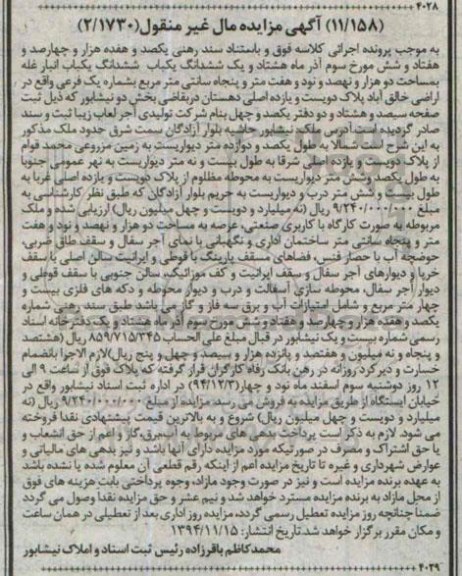 ۴۰۲۸
(۱۱/۱۵۸) آگهی مزایده مال غیر منقول(۲/۱۷۳۰)
به موجب پرونده اجرائی کلاسه فوق و باستناد سند رهنی یکصد و هفده هزار و چهارصد و
هفتاد و شش مورخ سوم آذر ماه هشتاد و یک ششدانگ یکباب ششدانگ یکباب انبار غله
بمساحت دو هزار و نهصد و نود و هفت متر و پنجاه سانتی متر مربع بشماره یک فرعی واقع در
اراضی خالق آباد پلاک دویست و یازده اصلی دهستان دربقاضی بخش دو نیشابور که ذیل ثبت
صفحه سیصد و هشتاد و دو دفتر یکصد و چهل بنام شرکت تولیدی آجر لعاب زیبا ثبت و سند
صادر گردیده است آدرس ملک نیشابور حاشیه بلوار آزادگان سمت شرق حدود ملک مذکور
به این شرح است شمالا به طول یکصد و دوازده متر دیواریست به زمین مزروعی محمد قوام
از پلاک دویست و یازده اصلی شرقا به طول بیست و نه متر دیواریست به نهر عمومی جنوبا
به طول یکصد و شش متر دیواریست به محوطه مظلوم از پلاک دویست و یازده اصلی غربا به
طول بیست و شش متر درب و دیواریست به حریم بلوار آزادگان که طبق نظر کارشناسی به
مبلغ ۹/۲۴۰/۰۰۰/۰۰۰ ریال (نه میلیارد و دویست و چهل میلیون ریال) ارزیابی شده و ملک
مربوطه به صورت کارگاه با کاربری صنعتی، عرصه به مساحت دو هزار و نهصد و نود و هفت
متر و پنجاه سانتی متر ساختمان اداری و نگهبانی با نمای آجر سفال و سقف طاق ضربی،
حوضچه آب با حصار فنس، فضاهای مسقف پارینگ با قوطی و ایرانیت سالن اصلی با سقف
خرپا و دیوارهای آجر سفال و سقف ایرانیت و کف موزائیک، سالن جنوبی با سقف قوطی و
دیوار آجر سفال، محوطه سازی آسفالت و درب و دیوار محوطه و دکه های فلزی بیست و
چهار متر مربع و شامل امتیازات آب و برق سه فاز و گاز می باشد طبق سند رهنی شماره
یکصد و هفده هزار و چهارصد و هفتاد و شش مورخ سوم آذر ماه هشتاد و یک دفترخانه اسناد
رسمی شماره بیست و یک نیشابور در قبال مبلغ علی الحساب ۸۵۹/۷۱۵/۳۴۵ ریال (هشتصد
و پنجاه و نه میلیون و هفتصد و پانزده هزار و سیصد و چهل و پنج ریال) لازم الاجرا بانضمام
خسارت و دیرکرد روزانه در رهن بانک رفاه کارگران قرار گرفته که پلاک فوق از ساعت ۹ الی
۱۲ روز دوشنبه سوم اسفند ماه نود و چهار(۹۴/۱۲/۳) در اداره ثبت اسناد نیشابور واقع در
خیابان ایستگاه از طریق مزایده به فروش می رسد. مزایده از مبلغ ۹/۲۴۰/۰۰۰/۰۰۰ ریال (نه
میلیارد و دویست و چهل میلیون ریال) شروع و به بالاترین قیمت پیشنهادی نقدا فروخته
می شود. لازم به ذکر است پرداخت بدهی های مربوط به آب، برق، گاز و اعم از حق انشعاب و
یا حق اشتراک و مصرف در صورتیکه مورد مزایده دارای آنها باشد و نیز بدهی های مالیاتی و
عوارض شهرداری و غیره تا تاریخ مزایده اعم از اینکه رقم قطعی آن معلوم شده یا نشده باشد
به عهده برنده مزایده است و نیز در صورت وجود مازاد، وجوه پرداختی بابت هزینه های فوق
از محل مازاد به برنده مزایده مسترد خواهد شد و نیم عشر و حق مزایده نقدا وصول می گردد
ضمنا چنانچه روز مزایده تعطیل رسمی گردد، مزایده روز اداری بعد از تعطیلی در همان ساعت
و مکان مقرر برگزار خواهد شد. تاریخ انتشار: ۱۳۹۴/۱۱/۱۵
محمد کاظم باقرزاده رئیس ثبت اسناد و املاک نیشابور
۴۰۲۹